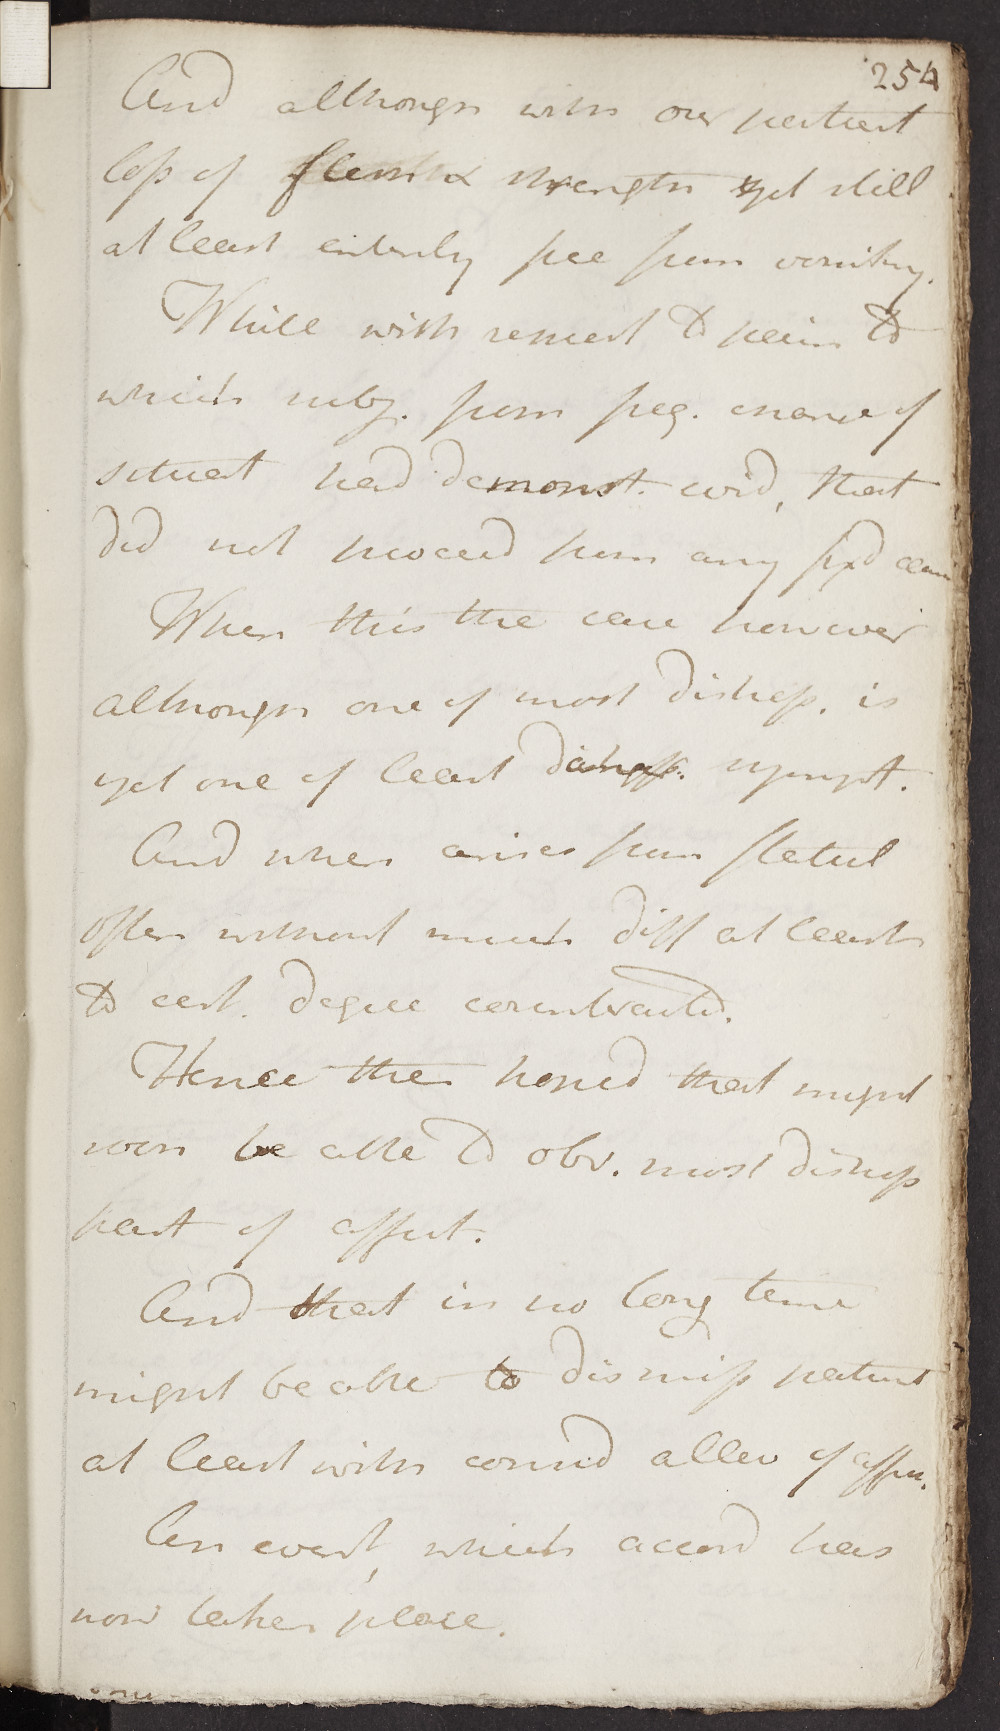 254
And although with our patient
loss of flesh & strength yet still
at least entirely free from vomiting.
While with respect to pain to
which subj. from freq. change of
situat had demonst. evid, that
did not proceed from any fixd cause
When this the case however
although one of most distress. is
yet one of least dangs. sympt.
And when arises from flatul
often without much diff at least
to cert. degree counteracted.
Hence then hoped that might
soon be able to obv. most distress
part of affect.
And that in no long time
might be able to dismiss patient
at least with consid allev of affec.
An event, which accord has
now taken place.